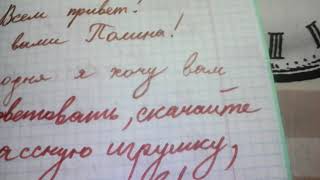 Всем привет!
вами Полина!
одня я хочу вам
оветовать, скачайте
ассную игрушку,